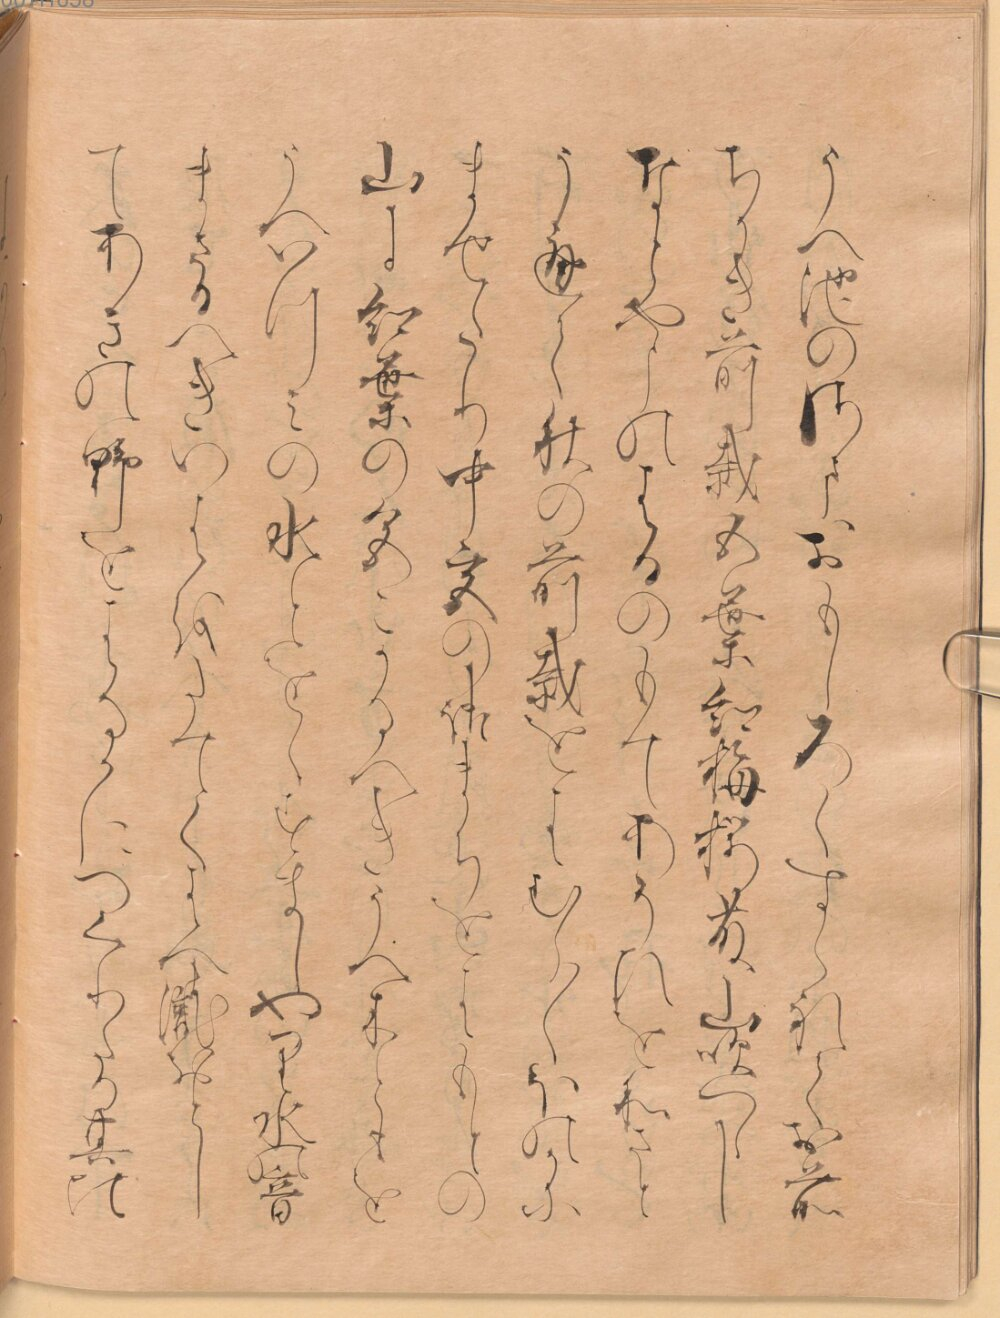 うへ池のさまおもしろくすくれてお前
ちかき前栽五葉紅梅桜藤山吹つゝし
なとやうのはるのもてあそひを私さと
うへて秋の前栽をはむら〱ほのかに
ませたり中宮の御まちをはもとの
山に紅葉の色こかるへきうへ木ともを
うへいつみの水とをくすましやり水の音
まさるへきいはほたてくはへ滝おとし
てあきの野をはるかにつくりたる其比